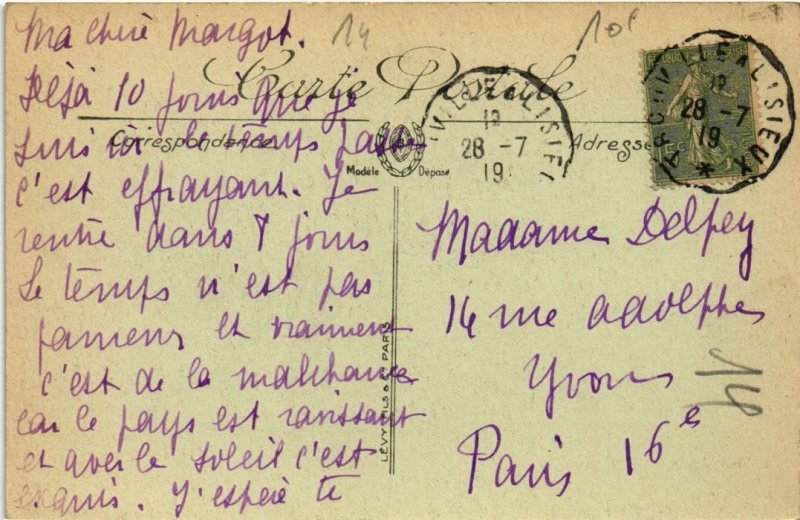 Ma chère Margot.
Déjà 10 jours que je
suis ici le temps passe
c'est effrayant. Je
rentre dans 8 jours
Le temps n'est pas
fameux et vraiment
c'est de la malchance
car le pays est ravissant
et avec le soleil c'est
exquis. J'espère te
14
10f
Carte Postale
Correspondance
Adresse
Modèle Déposé
VILLE A LISIEUX
12
28 -7
19
VILLE A LISIEUX
12
28 -7
19
Madame Delpey
14 rue Adolphe
Yvon
Paris 16e
14
LÉVY FILS & Cie PARIS